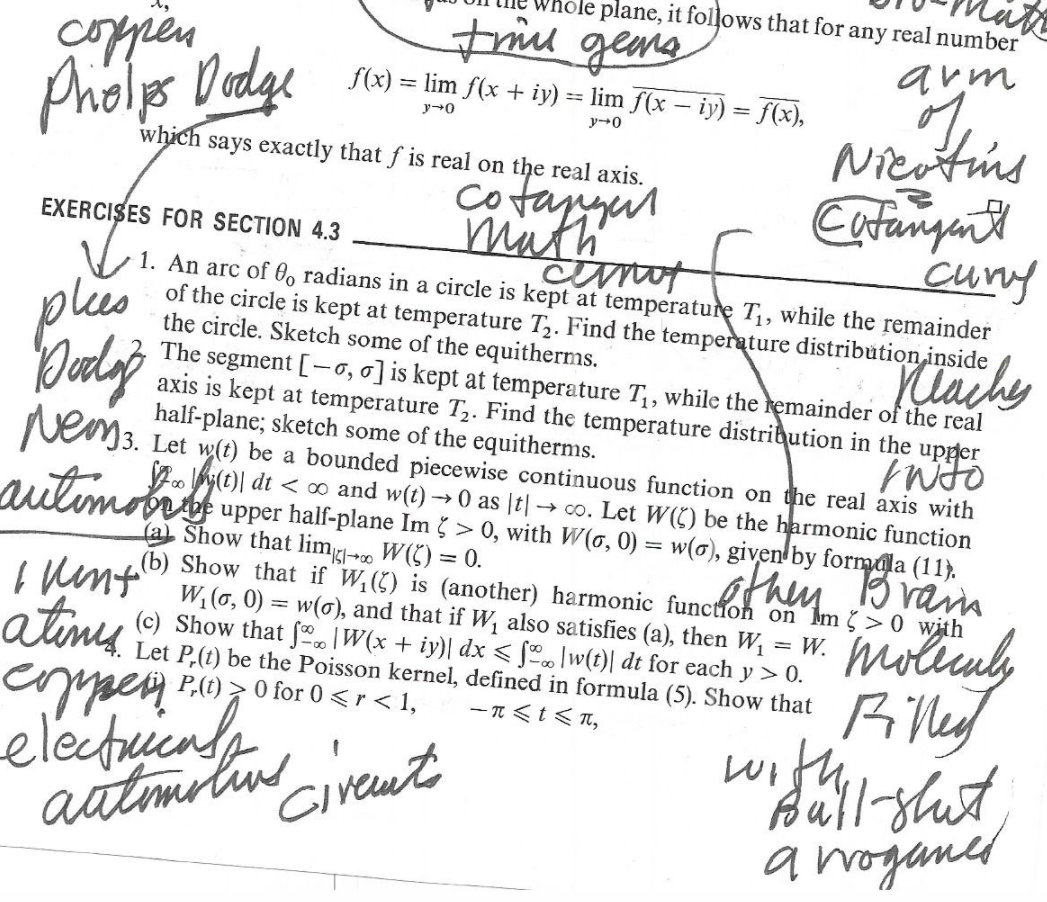 the whole plane, it follows that for any real number
time gears
copper
Phelps Dodge
f(x) = lim f(x + iy) = lim f(x − iy) = f(x),
y→0 y→0
arm
of
which says exactly that f is real on the real axis.
Nicotins
Cotangent
Math
Cotangent
curve
EXERCISES FOR SECTION 4.3
1. An arc of θ₀ radians in a circle is kept at temperature T₁, while the remainder
of the circle is kept at temperature T₂. Find the temperature distribution inside
the circle. Sketch some of the equitherms.
Dodge
Reaches
2. The segment [−σ, σ] is kept at temperature T₁, while the remainder of the real
axis is kept at temperature T₂. Find the temperature distribution in the upper
half-plane; sketch some of the equitherms.
into
3. Let w(t) be a bounded piecewise continuous function on the real axis with
∫∞−∞ |w(t)| dt < ∞ and w(t) → 0 as |t| → ∞. Let W(ζ) be the harmonic function
on the upper half-plane Im ζ > 0, with W(σ, 0) = w(σ), given by formula (11).
(a) Show that lim|ζ|→∞ W(ζ) = 0.
(b) Show that if W₁(ζ) is (another) harmonic function on Im ζ > 0 with
W₁(σ, 0) = w(σ), and that if W₁ also satisfies (a), then W₁ = W.
(c) Show that ∫∞−∞ |W(x + iy)| dx ⩽ ∫∞−∞ |w(t)| dt for each y > 0.
4. Let Pᵣ(t) be the Poisson kernel, defined in formula (5). Show that
(i) Pᵣ(t) > 0 for 0 ⩽ r < 1, −π ⩽ t ⩽ π,
other Brain
Filled
with
arrogance
atoms
copper
circuits